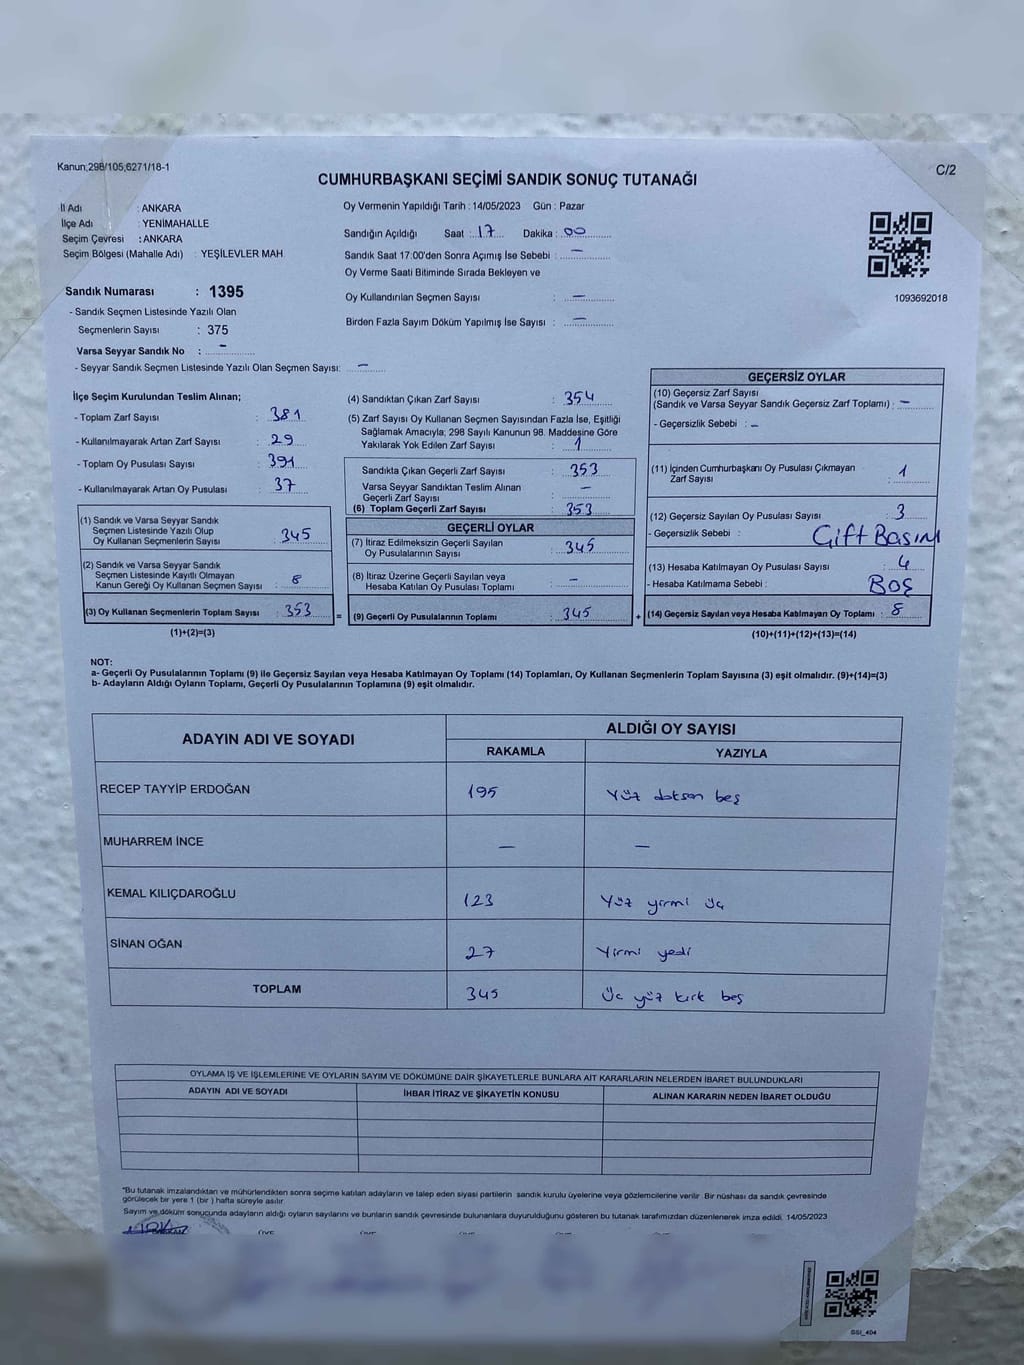 Kanun;298/105;6271/18-1
C/2
CUMHURBAŞKANI SEÇİMİ SANDIK SONUÇ TUTANAĞI
İl Adı : ANKARA
İlçe Adı : YENİMAHALLE
Seçim Çevresi : ANKARA
Seçim Bölgesi (Mahalle Adı) : YEŞİLEVLER MAH
Sandık Numarası : 1395
- Sandık Seçmen Listesinde Yazılı Olan
Seçmenlerin Sayısı : 375
Varsa Seyyar Sandık No : -
- Seyyar Sandık Seçmen Listesinde Yazılı Olan Seçmen Sayısı: -
Oy Vermenin Yapıldığı Tarih : 14/05/2023 Gün : Pazar
Sandığın Açıldığı Saat : 17 Dakika : 00
Sandık Saat 17:00'den Sonra Açımış İse Sebebi : -
Oy Verme Saati Bitiminde Sırada Bekleyen ve
Oy Kullandırılan Seçmen Sayısı : -
Birden Fazla Sayım Döküm Yapılmış İse Sayısı : -
1093692018
İlçe Seçim Kurulundan Teslim Alınan;
- Toplam Zarf Sayısı : 381
- Kullanılmayarak Artan Zarf Sayısı : 29
- Toplam Oy Pusulası Sayısı : 391
- Kullanılmayarak Artan Oy Pusulası : 37
(1) Sandık ve Varsa Seyyar Sandık
Seçmen Listesinde Yazılı Olup
Oy Kullanan Seçmenlerin Sayısı : 345
(2) Sandık ve Varsa Seyyar Sandık
Seçmen Listesinde Kayıtlı Olmayan
Kanun Gereği Oy Kullanan Seçmen Sayısı : 8
(3) Oy Kullanan Seçmenlerin Toplam Sayısı : 353 =
(1)+(2)=(3)
(4) Sandıktan Çıkan Zarf Sayısı : 354
(5) Zarf Sayısı Oy Kullanan Seçmen Sayısından Fazla İse, Eşitliği
Sağlamak Amacıyla; 298 Sayılı Kanunun 98. Maddesine Göre
Yakılarak Yok Edilen Zarf Sayısı : 1
Sandıkta Çıkan Geçerli Zarf Sayısı : 353
Varsa Seyyar Sandıktan Teslim Alınan
Geçerli Zarf Sayısı : -
(6) Toplam Geçerli Zarf Sayısı : 353
GEÇERLİ OYLAR
(7) İtiraz Edilmeksizin Geçerli Sayılan
Oy Pusulalarının Sayısı : 345
(8) İtiraz Üzerine Geçerli Sayılan veya
Hesaba Katılan Oy Pusulası Toplamı : -
(9) Geçerli Oy Pusulalarının Toplamı : 345 +
GEÇERSİZ OYLAR
(10) Geçersiz Zarf Sayısı
(Sandık ve Varsa Seyyar Sandık Geçersiz Zarf Toplamı) : -
- Geçersizlik Sebebi : -
(11) İçinden Cumhurbaşkanı Oy Pusulası Çıkmayan
Zarf Sayısı : 1
(12) Geçersiz Sayılan Oy Pusulası Sayısı : 3
- Geçersizlik Sebebi : Çift Basım
(13) Hesaba Katılmayan Oy Pusulası Sayısı : 4
- Hesaba Katılmama Sebebi : BOŞ
(14) Geçersiz Sayılan veya Hesaba Katılmayan Oy Toplamı : 8
(10)+(11)+(12)+(13)=(14)
NOT:
a- Geçerli Oy Pusulalarının Toplamı (9) ile Geçersiz Sayılan veya Hesaba Katılmayan Oy Toplamı (14) Toplamları, Oy Kullanan Seçmenlerin Toplam Sayısına (3) eşit olmalıdır. (9)+(14)=(3)
b- Adayların Aldığı Oyların Toplamı, Geçerli Oy Pusulalarının Toplamına (9) eşit olmalıdır.
ADAYIN ADI VE SOYADI
ALDIĞI OY SAYISI
RAKAMLA YAZIYLA
RECEP TAYYİP ERDOĞAN 195 Yüz doksan beş
MUHARREM İNCE - -
KEMAL KILIÇDAROĞLU 123 Yüz yirmi üç
SİNAN OĞAN 27 Yirmi yedi
TOPLAM 345 Üç yüz kırk beş
OYLAMA İŞ VE İŞLEMLERİNE VE OYLARIN SAYIM VE DÖKÜMÜNE DAİR ŞİKAYETLERLE BUNLARA AİT KARARLARIN NELERDEN İBARET BULUNDUKLARI
ADAYIN ADI VE SOYADI İHBAR İTİRAZ VE ŞİKAYETİN KONUSU ALINAN KARARIN NEDEN İBARET OLDUĞU
"Bu tutanak imzalandıktan ve mühürlendikten sonra seçime katılan adayların ve talep eden siyasi partilerin sandık kurulu üyelerine veya gözlemcilerine verilir. Bir nüshası da sandık çevresinde
görülecek bir yere 1 (bir) hafta süreyle asılır.
Sayım ve döküm sonucunda adayların aldığı oyların sayılarını ve bunların sandık çevresinde bulunanlara duyurulduğunu gösteren bu tutanak tarafımızdan düzenlenerek imza edildi. 14/05/2023
GSI_404